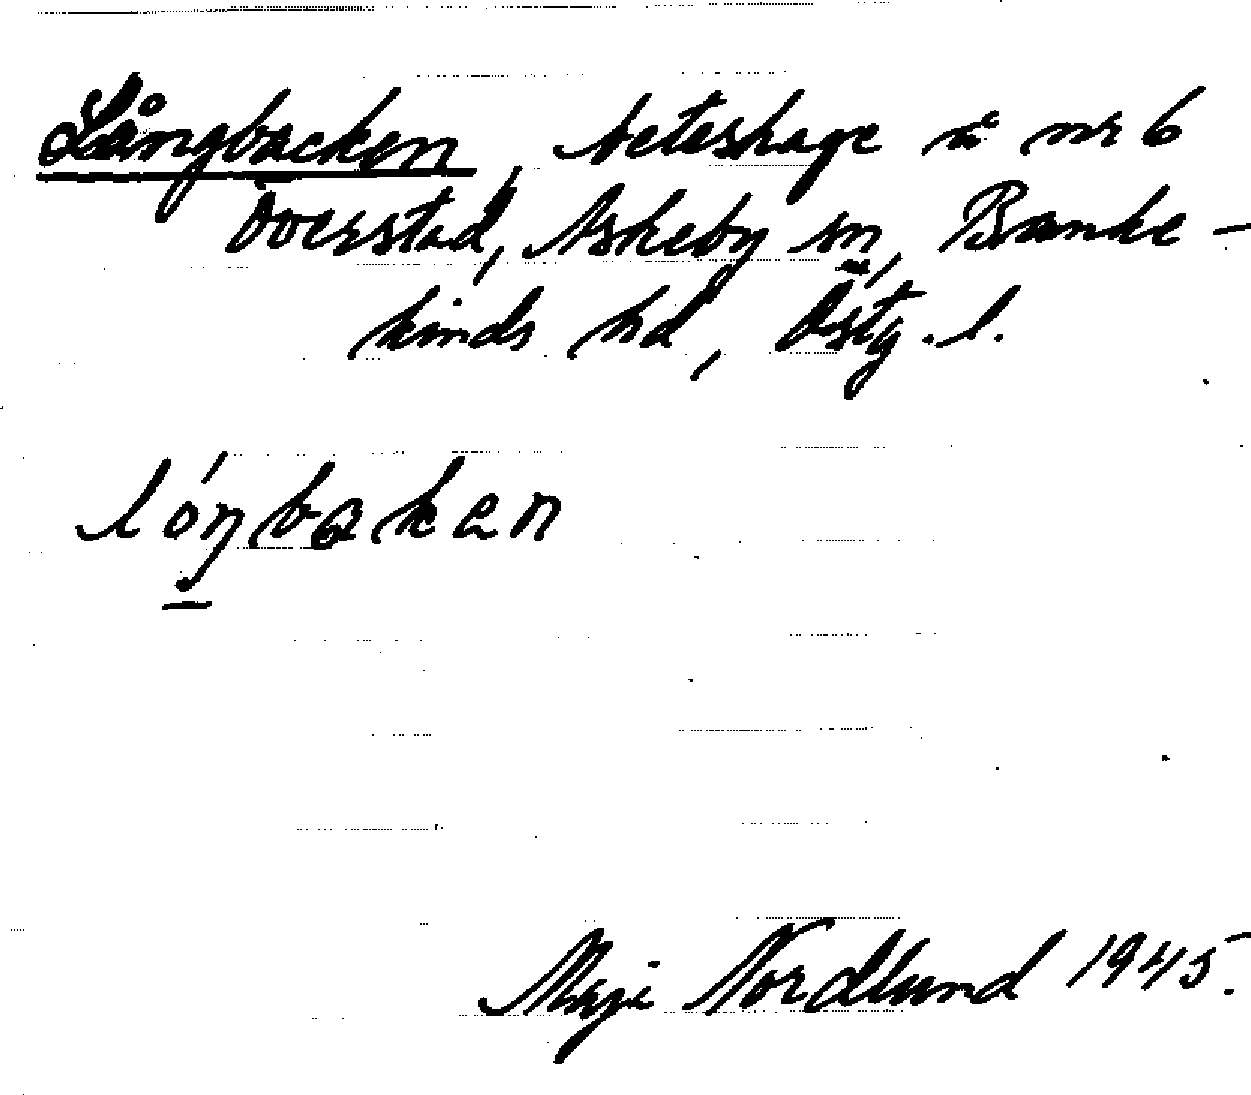 Långbacken, beteshage å nr 6
Överstad, Askeby sn, Banke-
kinds hd, Östg. l.
lóŋbakan
Maji Nordlund 1945.